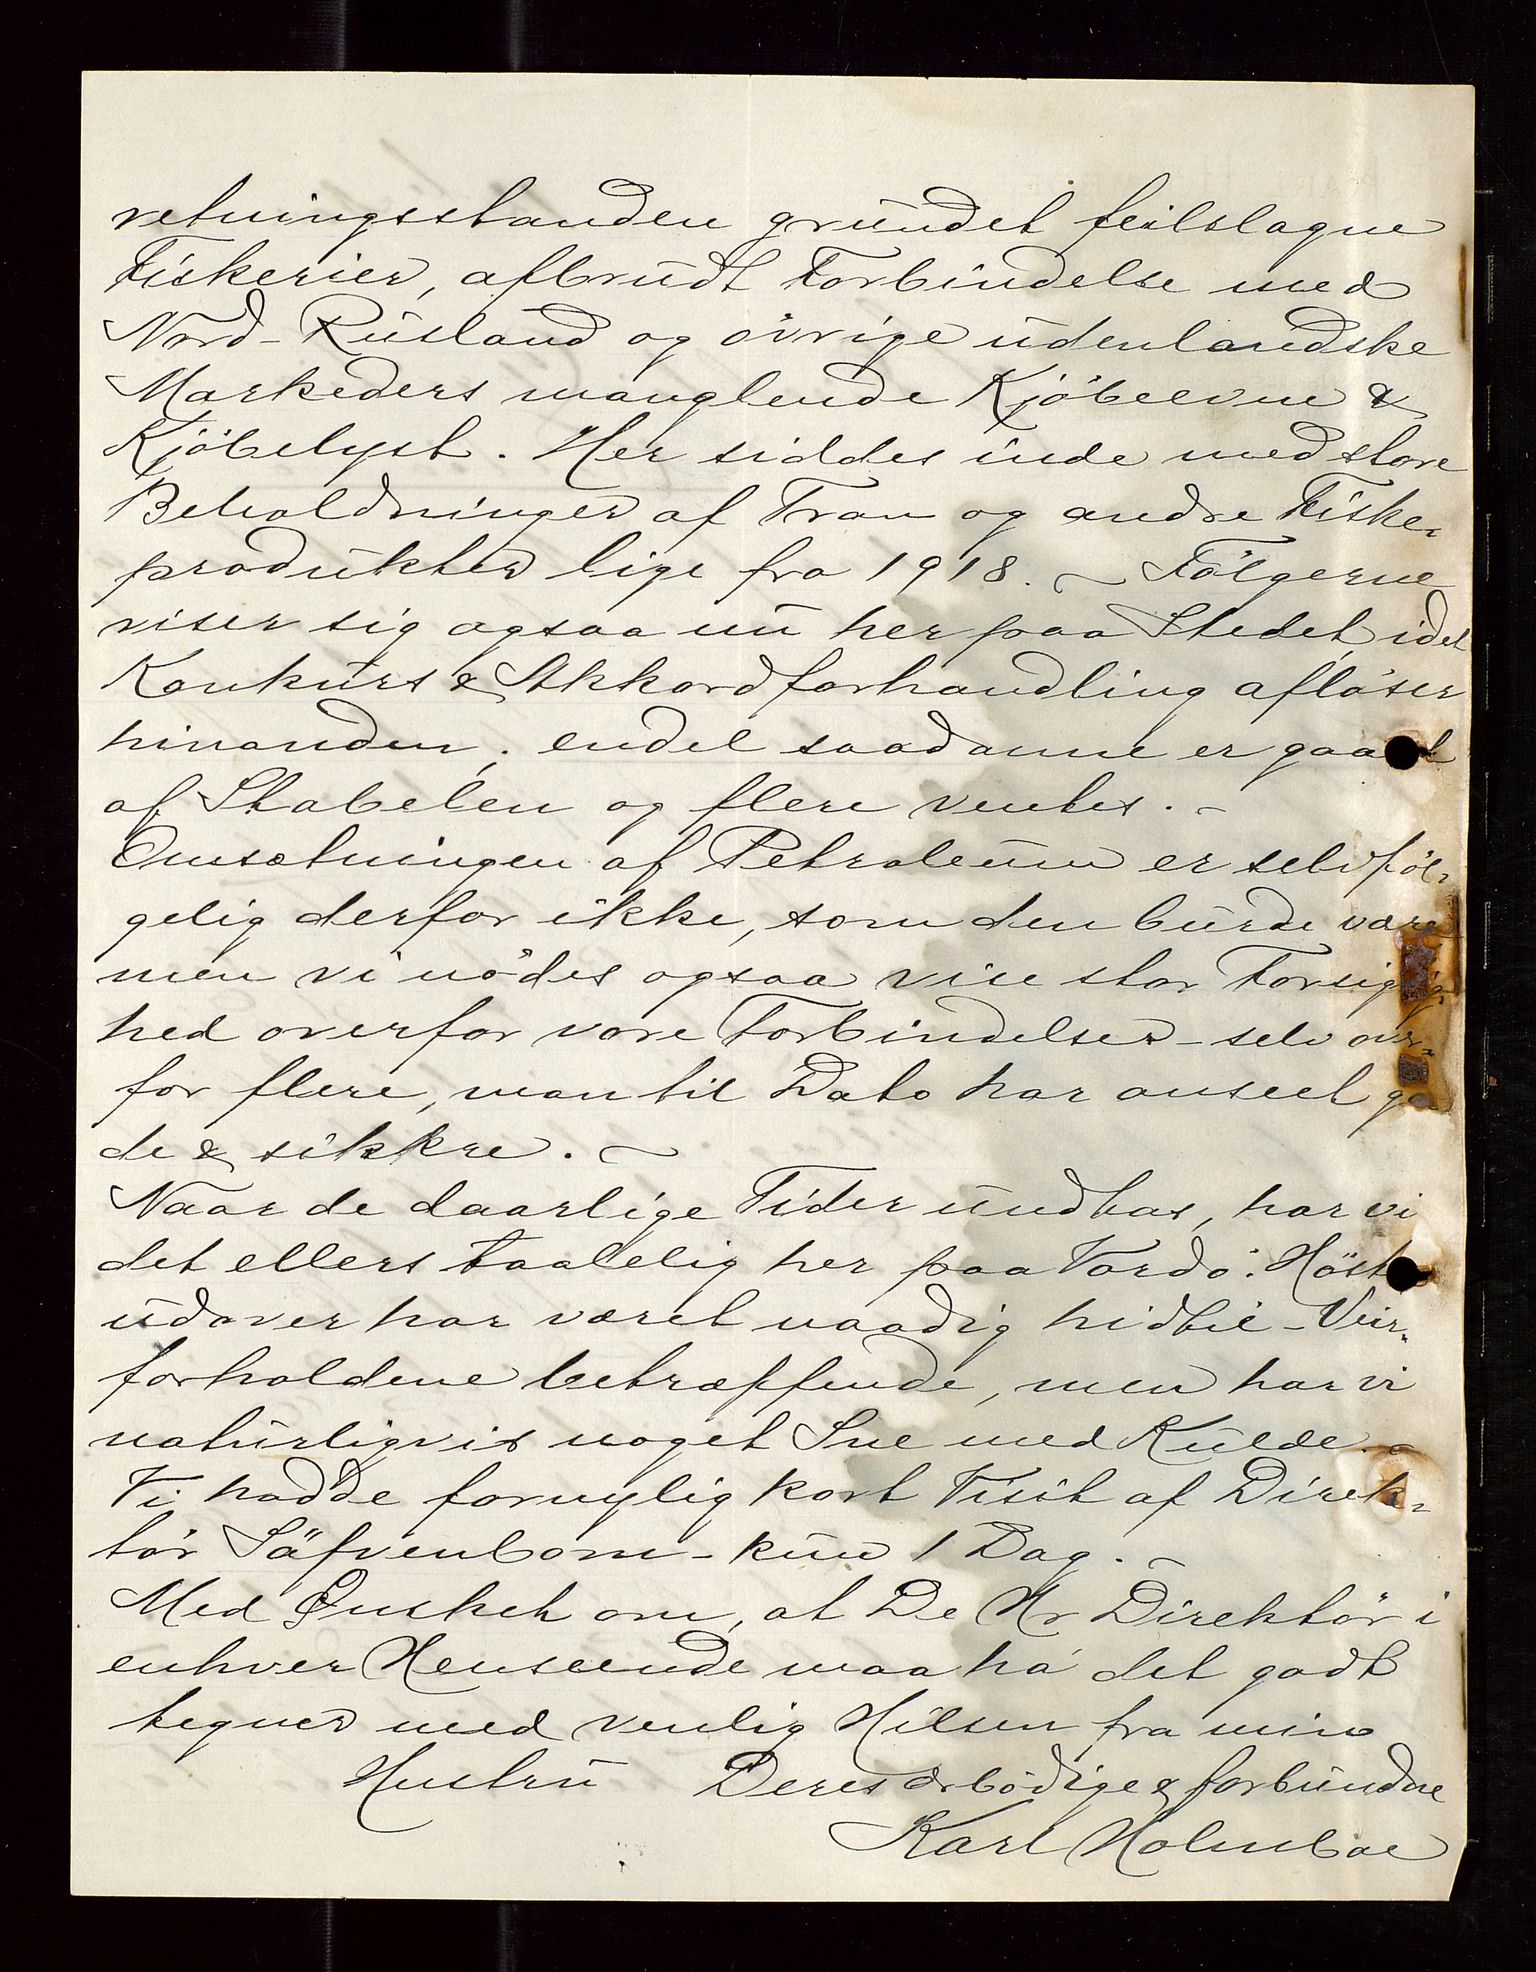 retningsstanden grundet feilslagne
Fiskerier, afbrudt Forbindelse med
Nord-Rusland og övrige udenlandske
Markeders manglende Kjöbeevne &
Kjöbelyst. Her siddes inde med store
Beholdninger af Tran og andre Fiske-
produkter lige fra 1918. ~ Fölgerne
viser sig ogsaa nu her paa Stedet, idet
Konkurs & Akkordforhandling aflöser
hinanden; endel saadanne er gaaet
af Stabelen og flere ventes. -
Omsætningen af Petroleum er selvföl-
gelig derfor ikke, som den burde være
men vi nödes ogsaa vise stor Forsigtig-
hed overfor vore Forbindelser - selv over-
for flere, man til Dato har anseet go
de & sikkre. ~
Naar de daarlige Tider undtas, har vi
det ellers taalelig her paa Vardö. Höst
udover har været naadig hidtil - Veir-
forholdene betræffende, men har vi
naturligvis noget Sne med Kulde. -
Vi hadde fornylig kort Visit af Direk-
tör Säfvenbom - kun 1 Dag. -
Med Ønsket om, at De Hr Direktör i
enhver Henseende maa ha det godt
tegner med venlig Hilsen fra min
Hustru Deres ærbödige & forbundne
Karl Holmboe